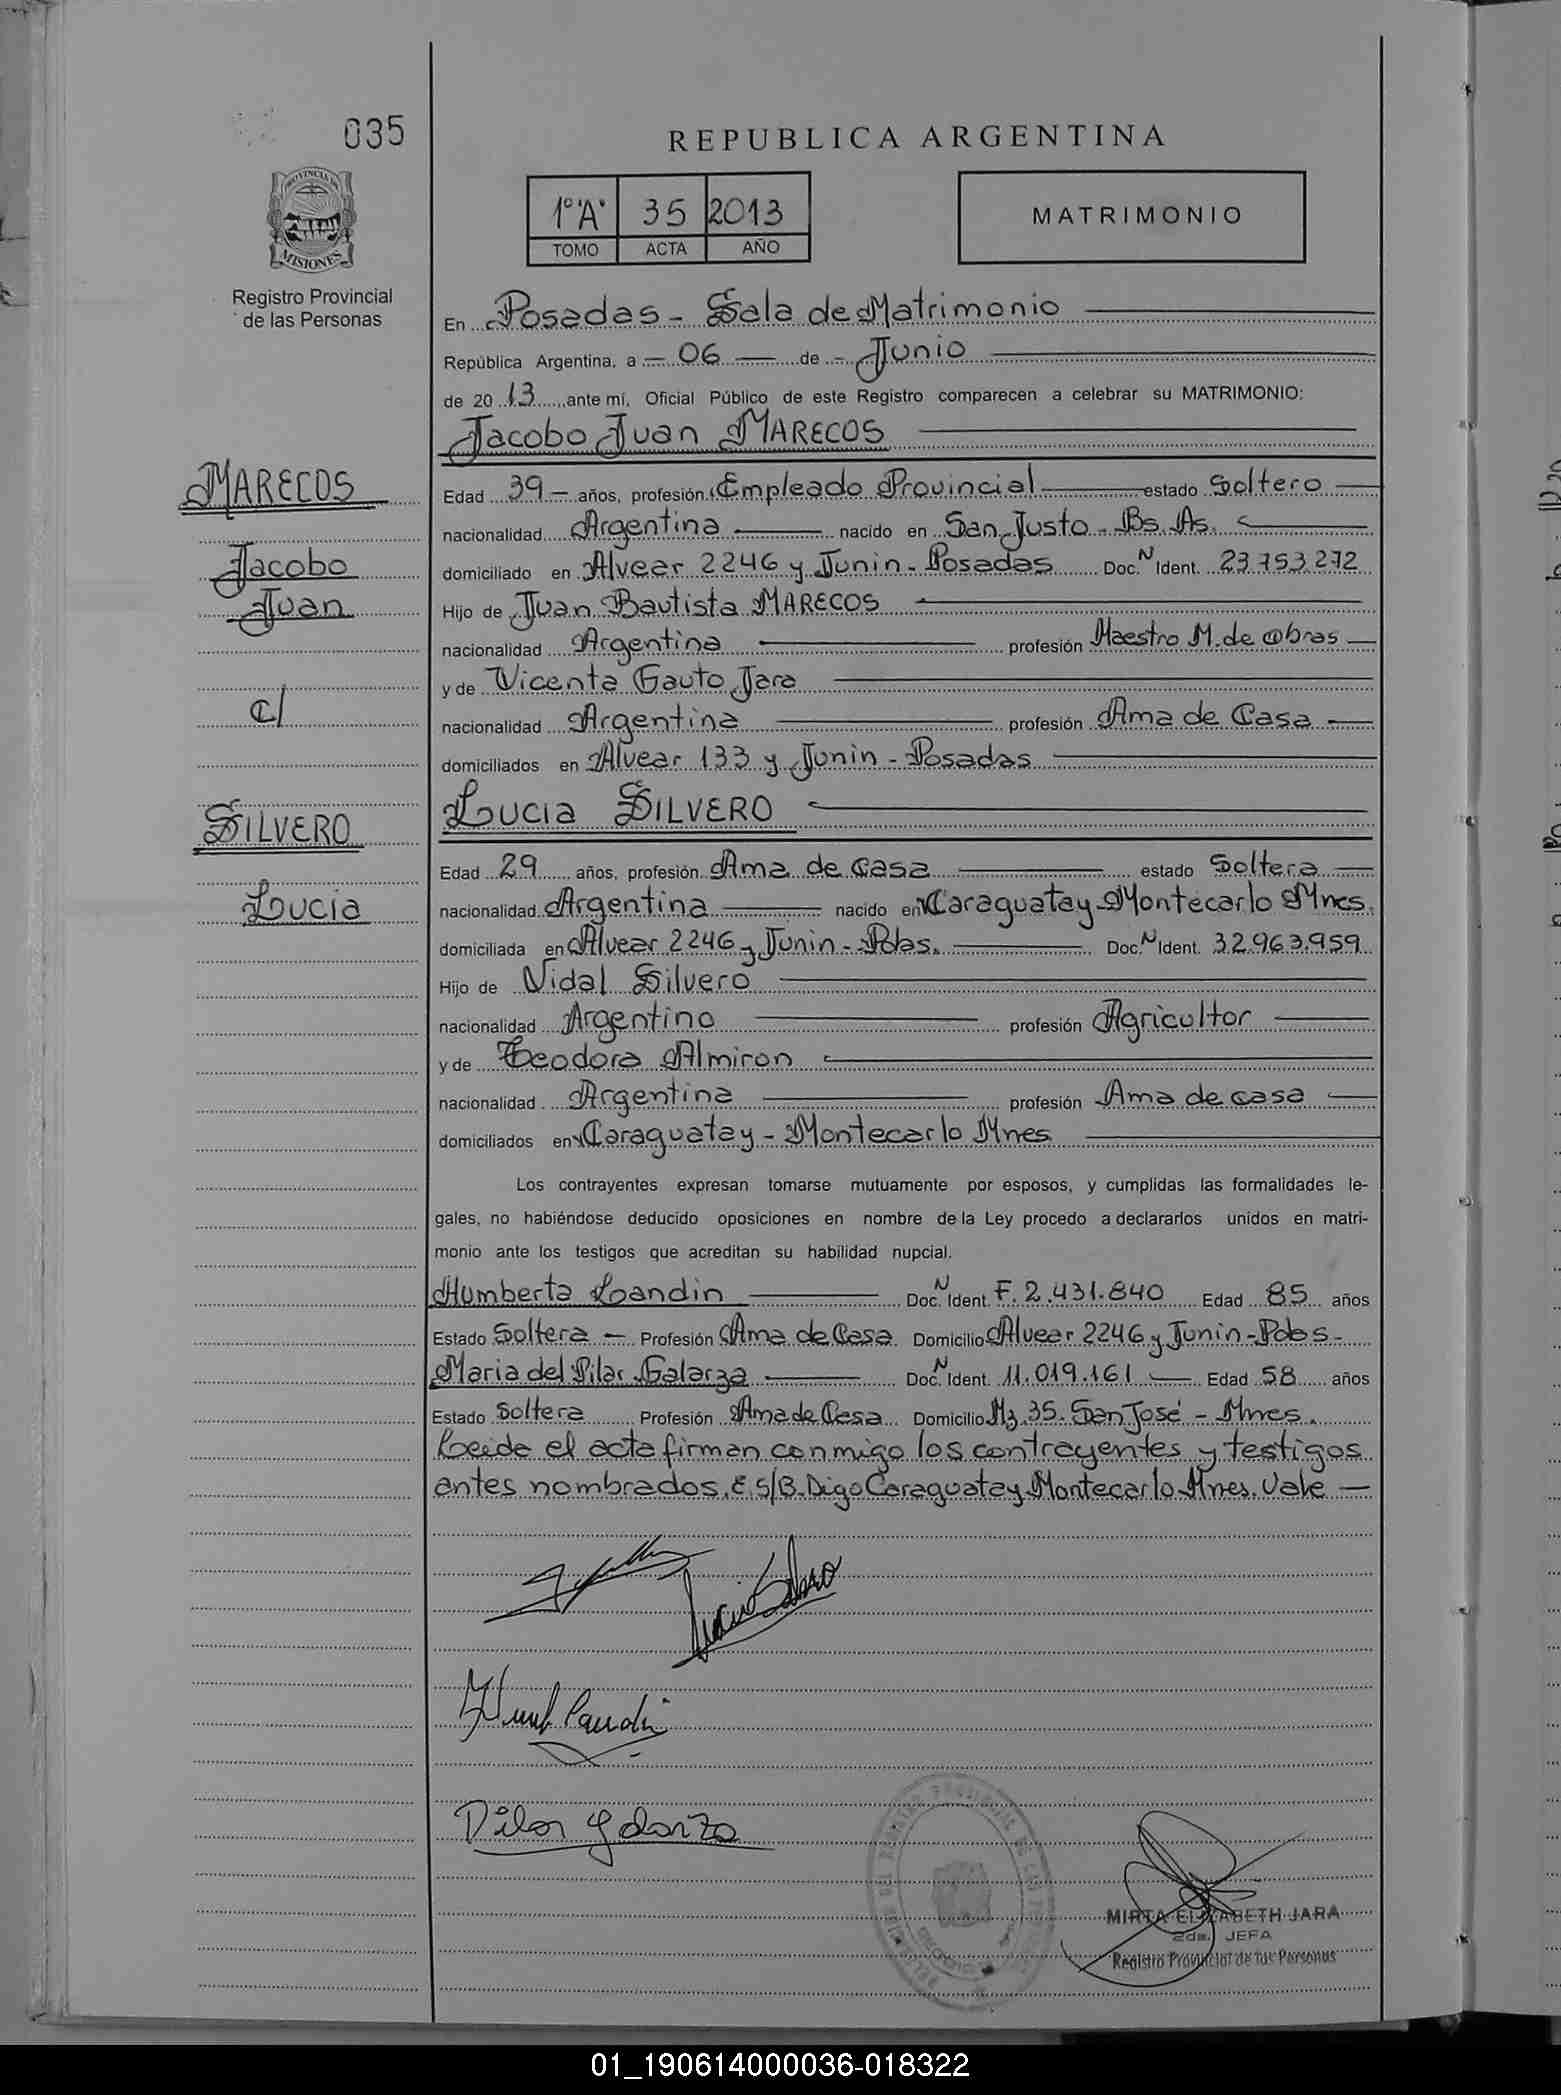 035
REPUBLICA ARGENTINA
1º "A" 35 2013
TOMO ACTA AÑO
MATRIMONIO
PROVINCIA DE
MISIONES
Registro Provincial
de las Personas
En Posadas - Sala de Matrimonio
República Argentina, a 06 de Junio
de 2013 ante mí, Oficial Público de este Registro comparecen a celebrar su MATRIMONIO:
Jacobo Juan MARECOS
MARECOS
Jacobo
Juan
c/
SILVERO
Lucia
Edad 39 años, profesión Empleado Provincial estado Soltero
nacionalidad Argentina nacido en San Justo - Bs. As.
domiciliado en Alvear 2246 y Junin - Posadas Doc. N Ident. 23.753.272
Hijo de Juan Bautista MARECOS
nacionalidad Argentina profesión Maestro M. de Obras
y de Vicenta Gauto Jara
nacionalidad Argentina profesión Ama de Casa
domiciliados en Alvear 133 y Junin - Posadas
Lucia SILVERO
Edad 29 años, profesión Ama de Casa estado Soltera
nacionalidad Argentina nacido en Caraguatay - Montecarlo Mnes.
domiciliada en Alvear 2246 y Junin - Pdas. Doc. N Ident. 32.963.959
Hijo de Vidal Silvero
nacionalidad Argentino profesión Agricultor
y de Teodora Almiron
nacionalidad Argentina profesión Ama de casa
domiciliados en Caraguatay - Montecarlo Mnes
Los contrayentes expresan tomarse mutuamente por esposos, y cumplidas las formalidades le-
gales, no habiéndose deducido oposiciones en nombre de la Ley procedo a declararlos unidos en matri-
monio ante los testigos que acreditan su habilidad nupcial.
Humberta Landin Doc. N Ident. F. 2.431.840 Edad 85 años
Estado Soltera - Profesión Ama de Casa Domicilio Alvear 2246 y Junin - Pdas -
Maria del Pilar Galarza Doc. N Ident. 11.019.161 Edad 58 años
Estado Soltera Profesión Ama de Casa Domicilio Mz. 35. San José - Mnes.
Leida el acta firman conmigo los contrayentes y testigos
antes nombrados. E. S/B. Digo Caraguatay Montecarlo Mnes. Vale -
Lucia Silvero
Pilar Galarza
MIRTA ELIZABETH JARA
2da. JEFA
Registro Provincial de las Personas
01_190614000036-018322